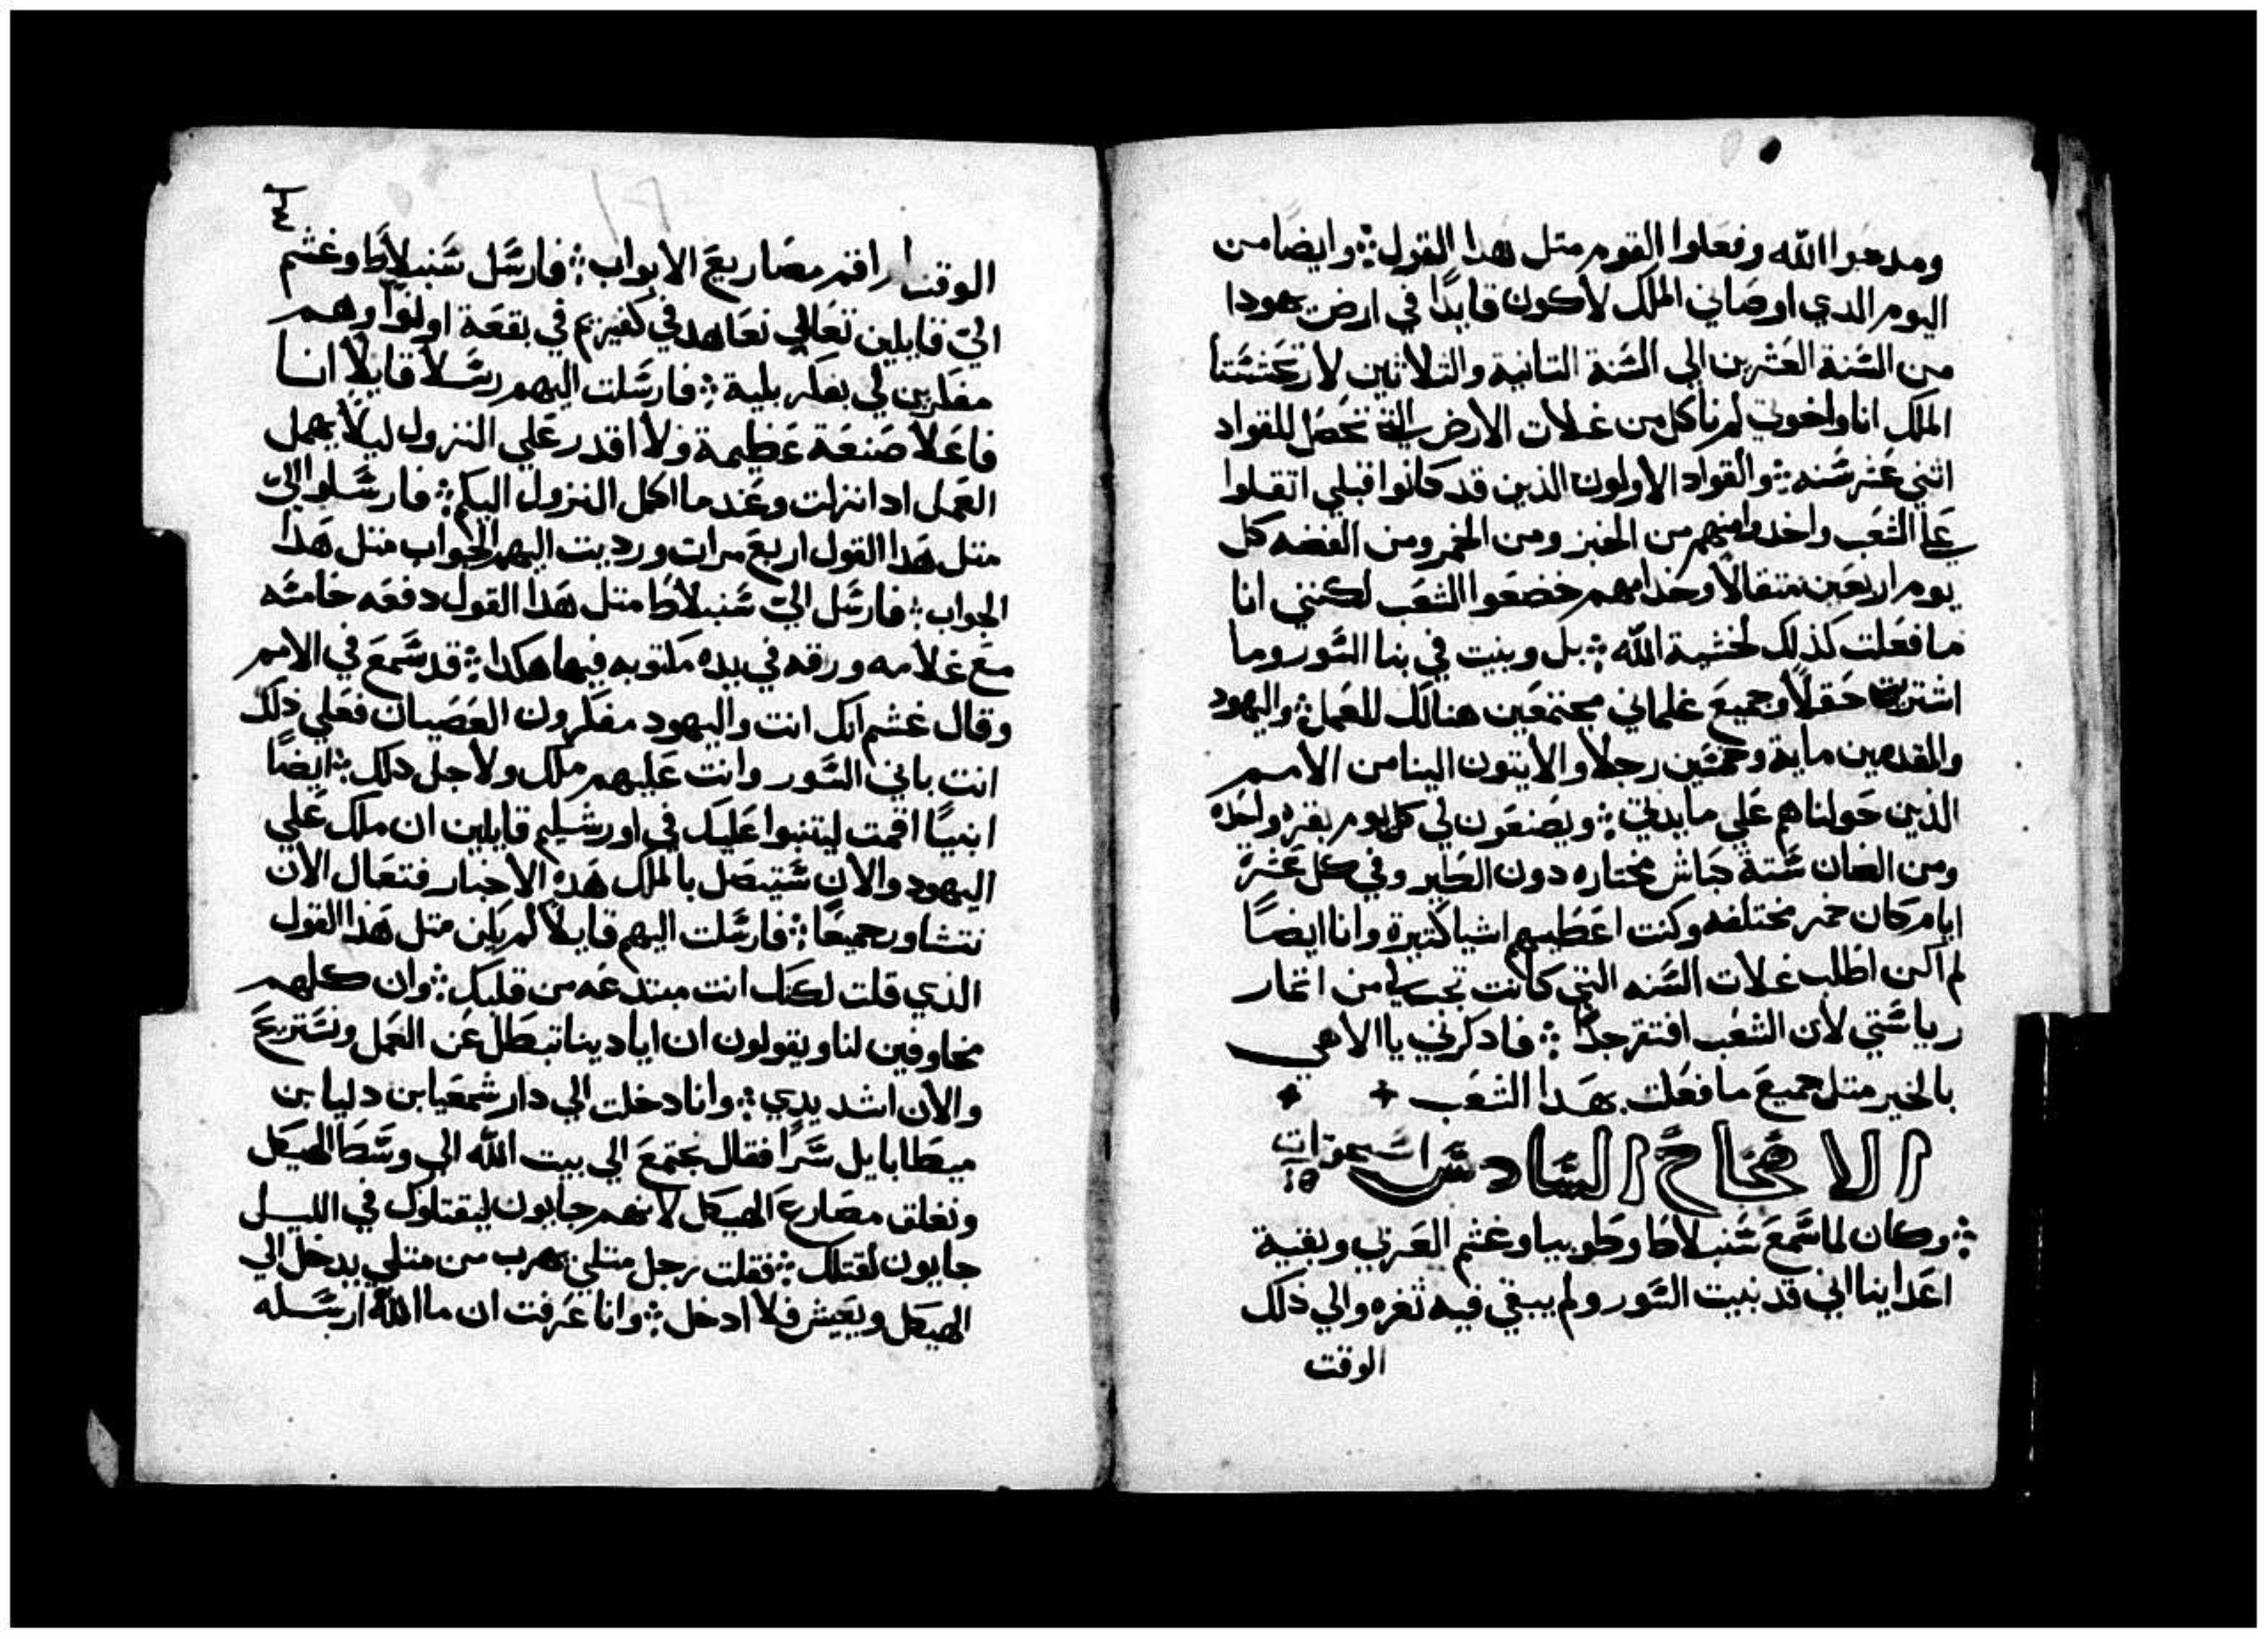 ومدحوا الله وفعلوا القوم متل هدا القول وايضا من
اليوم الدي اوصاني الملك لاكون قايدًا في ارض يهودا
من السَنة العَشرين الي السَنة التانية والتلاثين لارتحشستا
الملك انا واخوتي لم ناكل من غلات الارض التي تحصل للقواد
اثني عَشر سَنه والقواد الاولون الذين قد كانوا قبلي اتقلوا
علي الشعَب واخدوا منهم من الخبز ومن الخمر ومن الفضه كل
يوم اربعَين متقالًا وخدامهم خضعَوا الشعَب لكنني انا
ما فعَلت كذلك لخشية الله بل وبنيت في بنا السَور وما
اشتريت حَقلًا وجميعَ غلماني مجتمعَين هنالك للعَمل واليهود
والمقدمين ماية وخمسَين رجلًا والايتون الينا من الامم
الذين حَولنا هم عَلي مايدتي ويصنعَون لي كل يوم بقره واحَده
ومن الضان سَتة كباش مختاره دون الطير وفي كل عَشرة
ايام كان خمر مختلفه وكنت اعَطيهم اشيا كتيرة وانا ايضًا
لم اكن اطلب غلات السَنه التي كانت تجب لي من اتمار
رياسَتي لان الشعَب افتقر جدًا فادكرني يا الاهي
بالخير متل جميعَ ما فعَلت بهَدا الشعَب
الاصحَاحَ السَادسَ
١٥
وكان لما سَمعَ سَنبلاط وطوبيا وغشم العَربي وبقية
اعَداينا اني قد بنيت السَور ولم يبقي فيه ثغره والي ذلك
الوقت
الوقت اقم مصَاريعَ الابواب فارسَل سَنبلاط وغشم
اليّ قايلين تعَالي نعَاهد في كفيزيم في بقعَة اونوا وهم
مفكرين لي بفكر بلية فارسَلت اليهم رسَلًا قايلًا انا
فاعَلًا صَنعَة عَظيمة ولا اقدر عَلي النزول ليلا يهمل
العَمل ادا نزلت وعَندما اكمل النزول اليكم فارسَلوا اليّ
متل هَدا القول اربعَ مرات ورديت اليهم الجواب متل هَدا
الجواب فارسَل اليّ سَنبلاط متل هَدا القول دفعَه خامسَه
معَ غلامه ورقه في يده مكتوبه فيها هكدا قد سَمعَ في الامم
وقال غشم انك انت واليهود مفكرون العَصَيان فعَلي ذلك
انت باني السَور وانت عَليهم ملك ولاجل دلك ايضًا
انبيًا اقمت ليتنبوا عَليك في اورشليم قايلين ان ملك عَلي
اليهود والان سَتيصَل بالملك هَده الاخبار فتعَال الان
نتشاور جميعًا فارسَلت اليهم قايلًا لم يكن متل هَدا القول
الذي قلت لكنك انت مبتدعَه من قلبك وان كلهم
مخاوفين لنا ويقولون ان ايادينا تبطل عَن العَمل ونسَتريحَ
والان اشدد يدي وانا دخلت الي دار شمعَيا بن دليا بن
ميطابايل سَرًا فقال نجتمعَ الي بيت الله الي وسَط الهيكل
ونغلق مصَارعَ الهيكل لانهم جايون ليقتلوك في الليل
جايون لقتلك فقلت رجل متلي يهرب من متلي يدخل الي
الهيكل ويعَيش فلا ادخل وانا عَرفت ان ما الله ارسَله